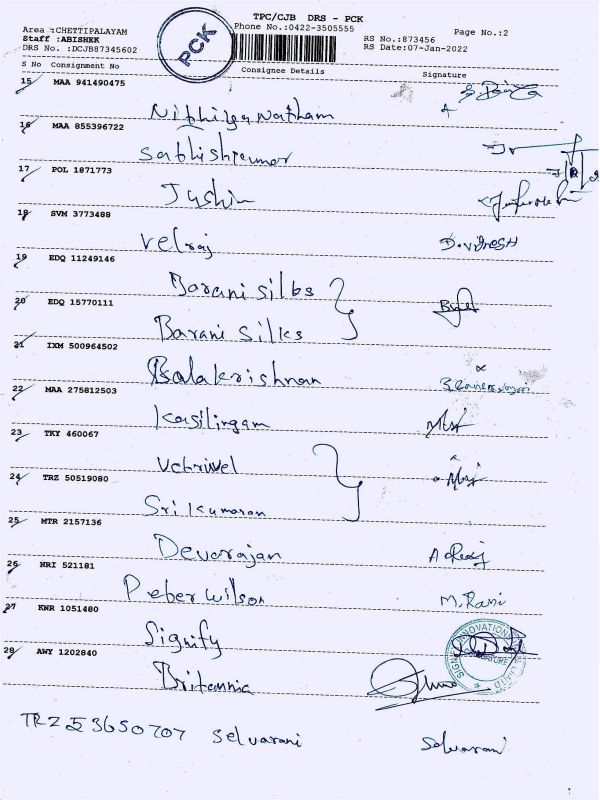 TPC/CJB DRS - PCK
Area :CHETTIPALAYAM Phone No.:0422-3505555 Page No.:2
Staff :ABISHEK RS No.:873456
DRS No. :DCJB87345602 RS Date:07-Jan-2022
PCK
S No Consignment No Consignee Details Signature
15 MAA 941490475
Nithiyanatham
16 MAA 855396722
Sathishkumar
17 POL 1871773
Jashin
18 SVM 3773488
Velraj D.VIGNESH
19 EDQ 11249146
Barani Silks
20 EDQ 15770111
Barani Silks
21 IXM 500964502
Balakrishnan
22 MAA 275812503
Kasilingam
23 TKY 460067
Vetrivel
24 TRZ 50519080
Sri Kumaran
25 MTR 2157136
Devarajan
26 NRI 521181
Peter Wilson M.Rani
27 KNR 1051480
Signify
28 AWY 1202840
Britannia
TRZ 53650707 Selvarani Selvarani